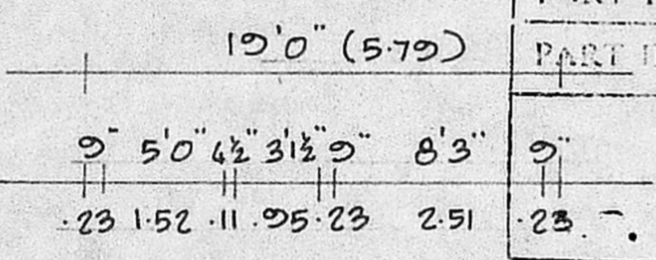 19'0" (5.79) PART
9" 5'0" 4½" 3'1½" 9" 8'3" 9"
.23 1.52 .11 .95 .23 2.51 .23